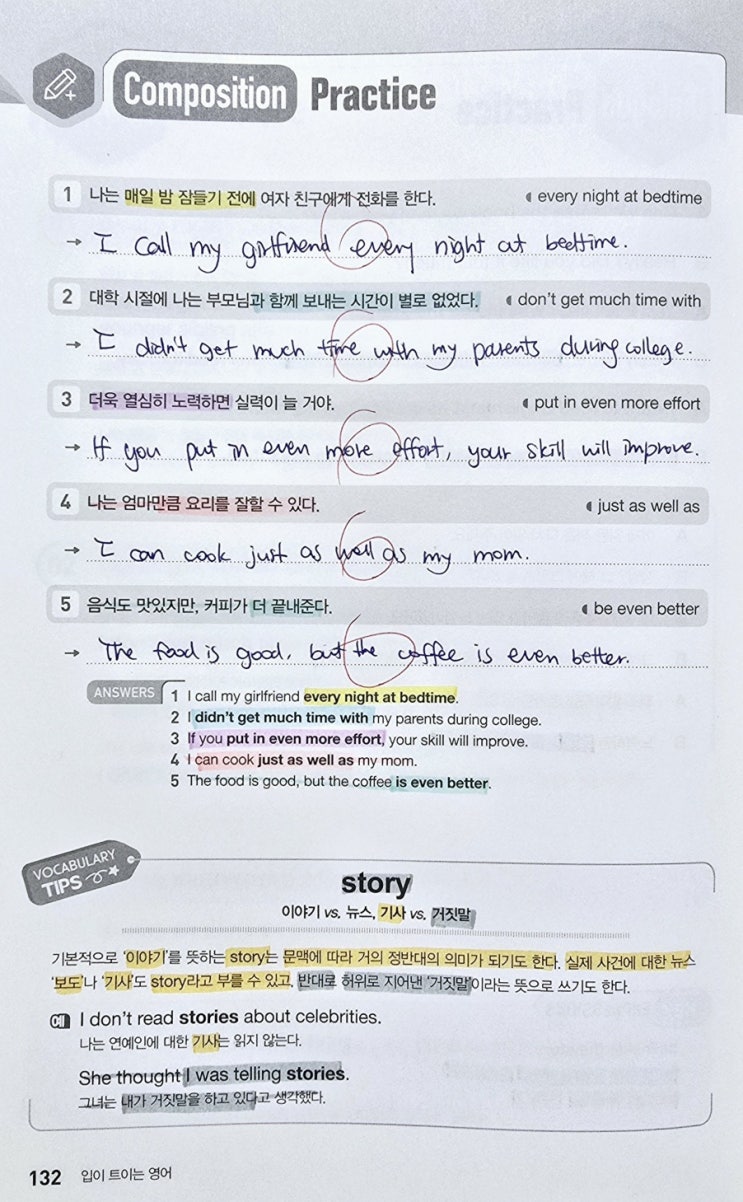 Composition Practice
1 나는 매일 밤 잠들기 전에 여자 친구에게 전화를 한다. every night at bedtime
→ I call my girlfriend every night at bedtime.
2 대학 시절에 나는 부모님과 함께 보내는 시간이 별로 없었다. don't get much time with
→ I didn't get much time with my parents during college.
3 더욱 열심히 노력하면 실력이 늘 거야. put in even more effort
→ If you put in even more effort, your skill will improve.
4 나는 엄마만큼 요리를 잘할 수 있다. just as well as
→ I can cook just as well as my mom.
5 음식도 맛있지만, 커피가 더 끝내준다. be even better
→ The food is good, but the coffee is even better.
ANSWERS 1 I call my girlfriend every night at bedtime.
2 I didn't get much time with my parents during college.
3 If you put in even more effort, your skill will improve.
4 I can cook just as well as my mom.
5 The food is good, but the coffee is even better.
VOCABULARY
TIPS
story
이야기 vs. 뉴스, 기사 vs. 거짓말
기본적으로 '이야기'를 뜻하는 story는 문맥에 따라 거의 정반대의 의미가 되기도 한다. 실제 사건에 대한 뉴스
'보도'나 '기사'도 story라고 부를 수 있고, 반대로 허위로 지어낸 '거짓말'이라는 뜻으로 쓰기도 한다.
예 I don't read stories about celebrities.
나는 연예인에 대한 기사는 읽지 않는다.
She thought I was telling stories.
그녀는 내가 거짓말을 하고 있다고 생각했다.
132 입이 트이는 영어